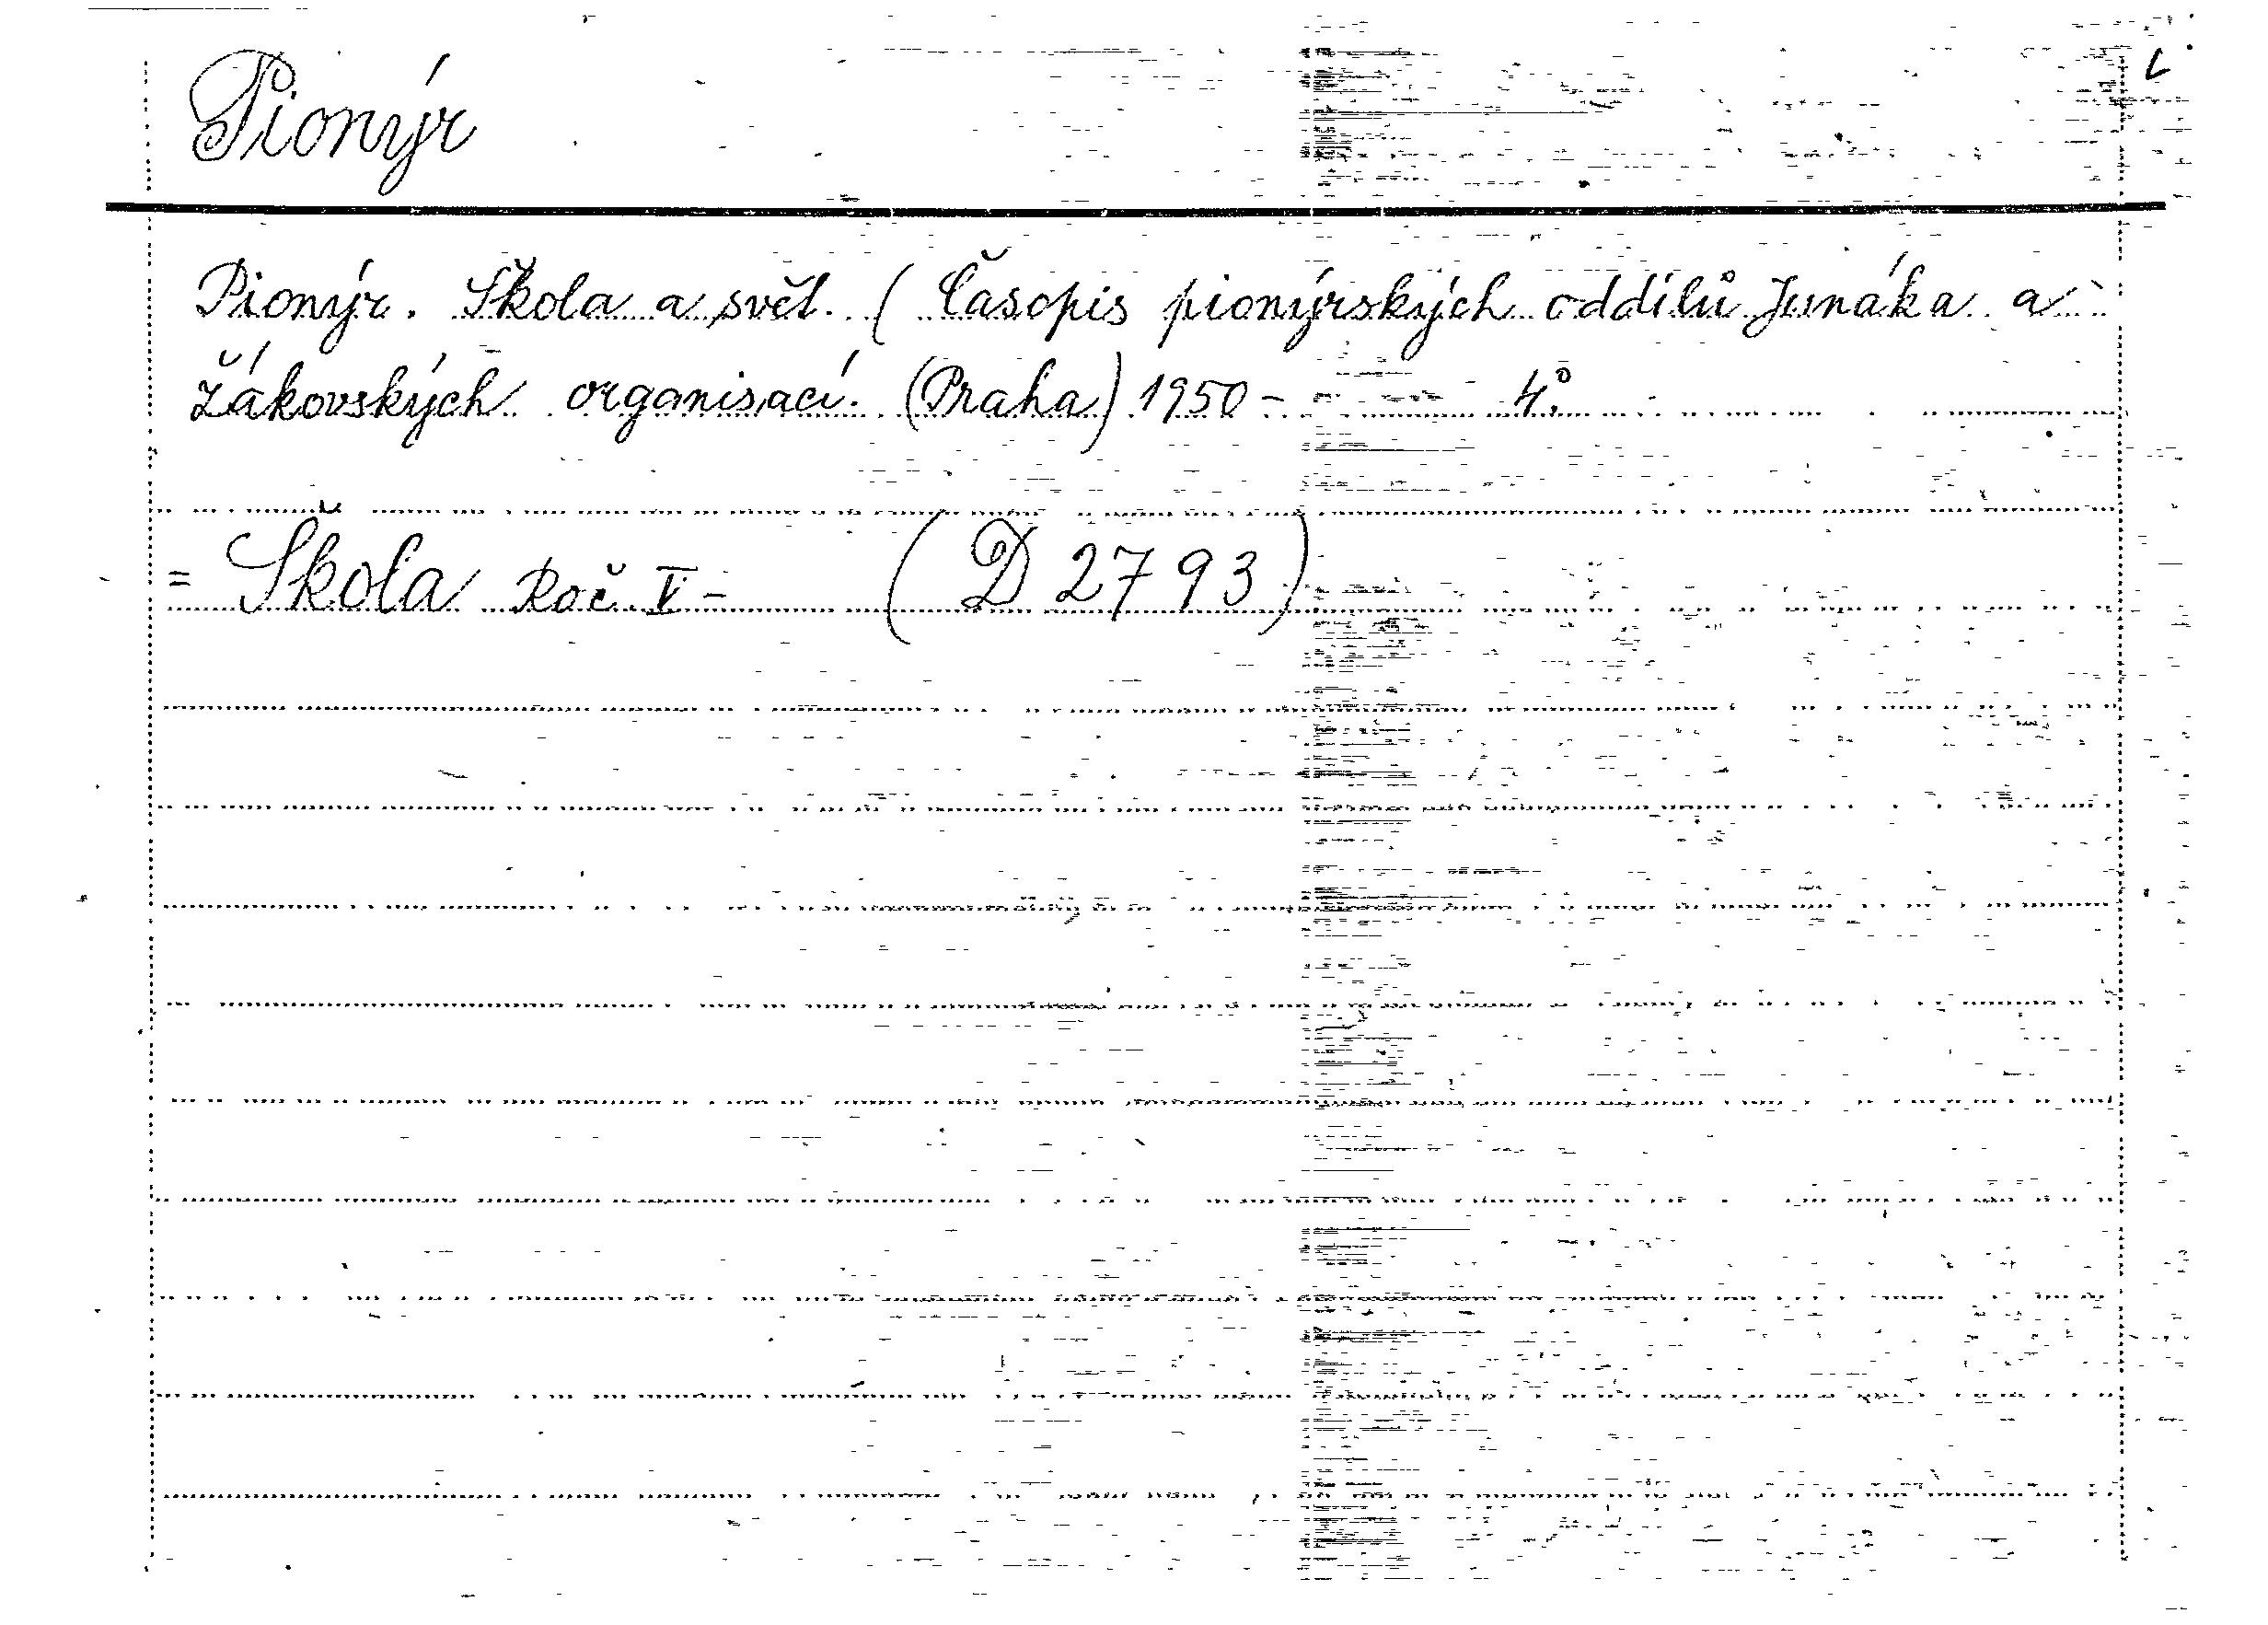 Pionýr
Pionýr. Škola a svět. ( Časopis pionýrských oddílů Junáka a
žákovských organisací. (Praha) 1950 - 4°.
= Škola Roč. V - (D 2793)